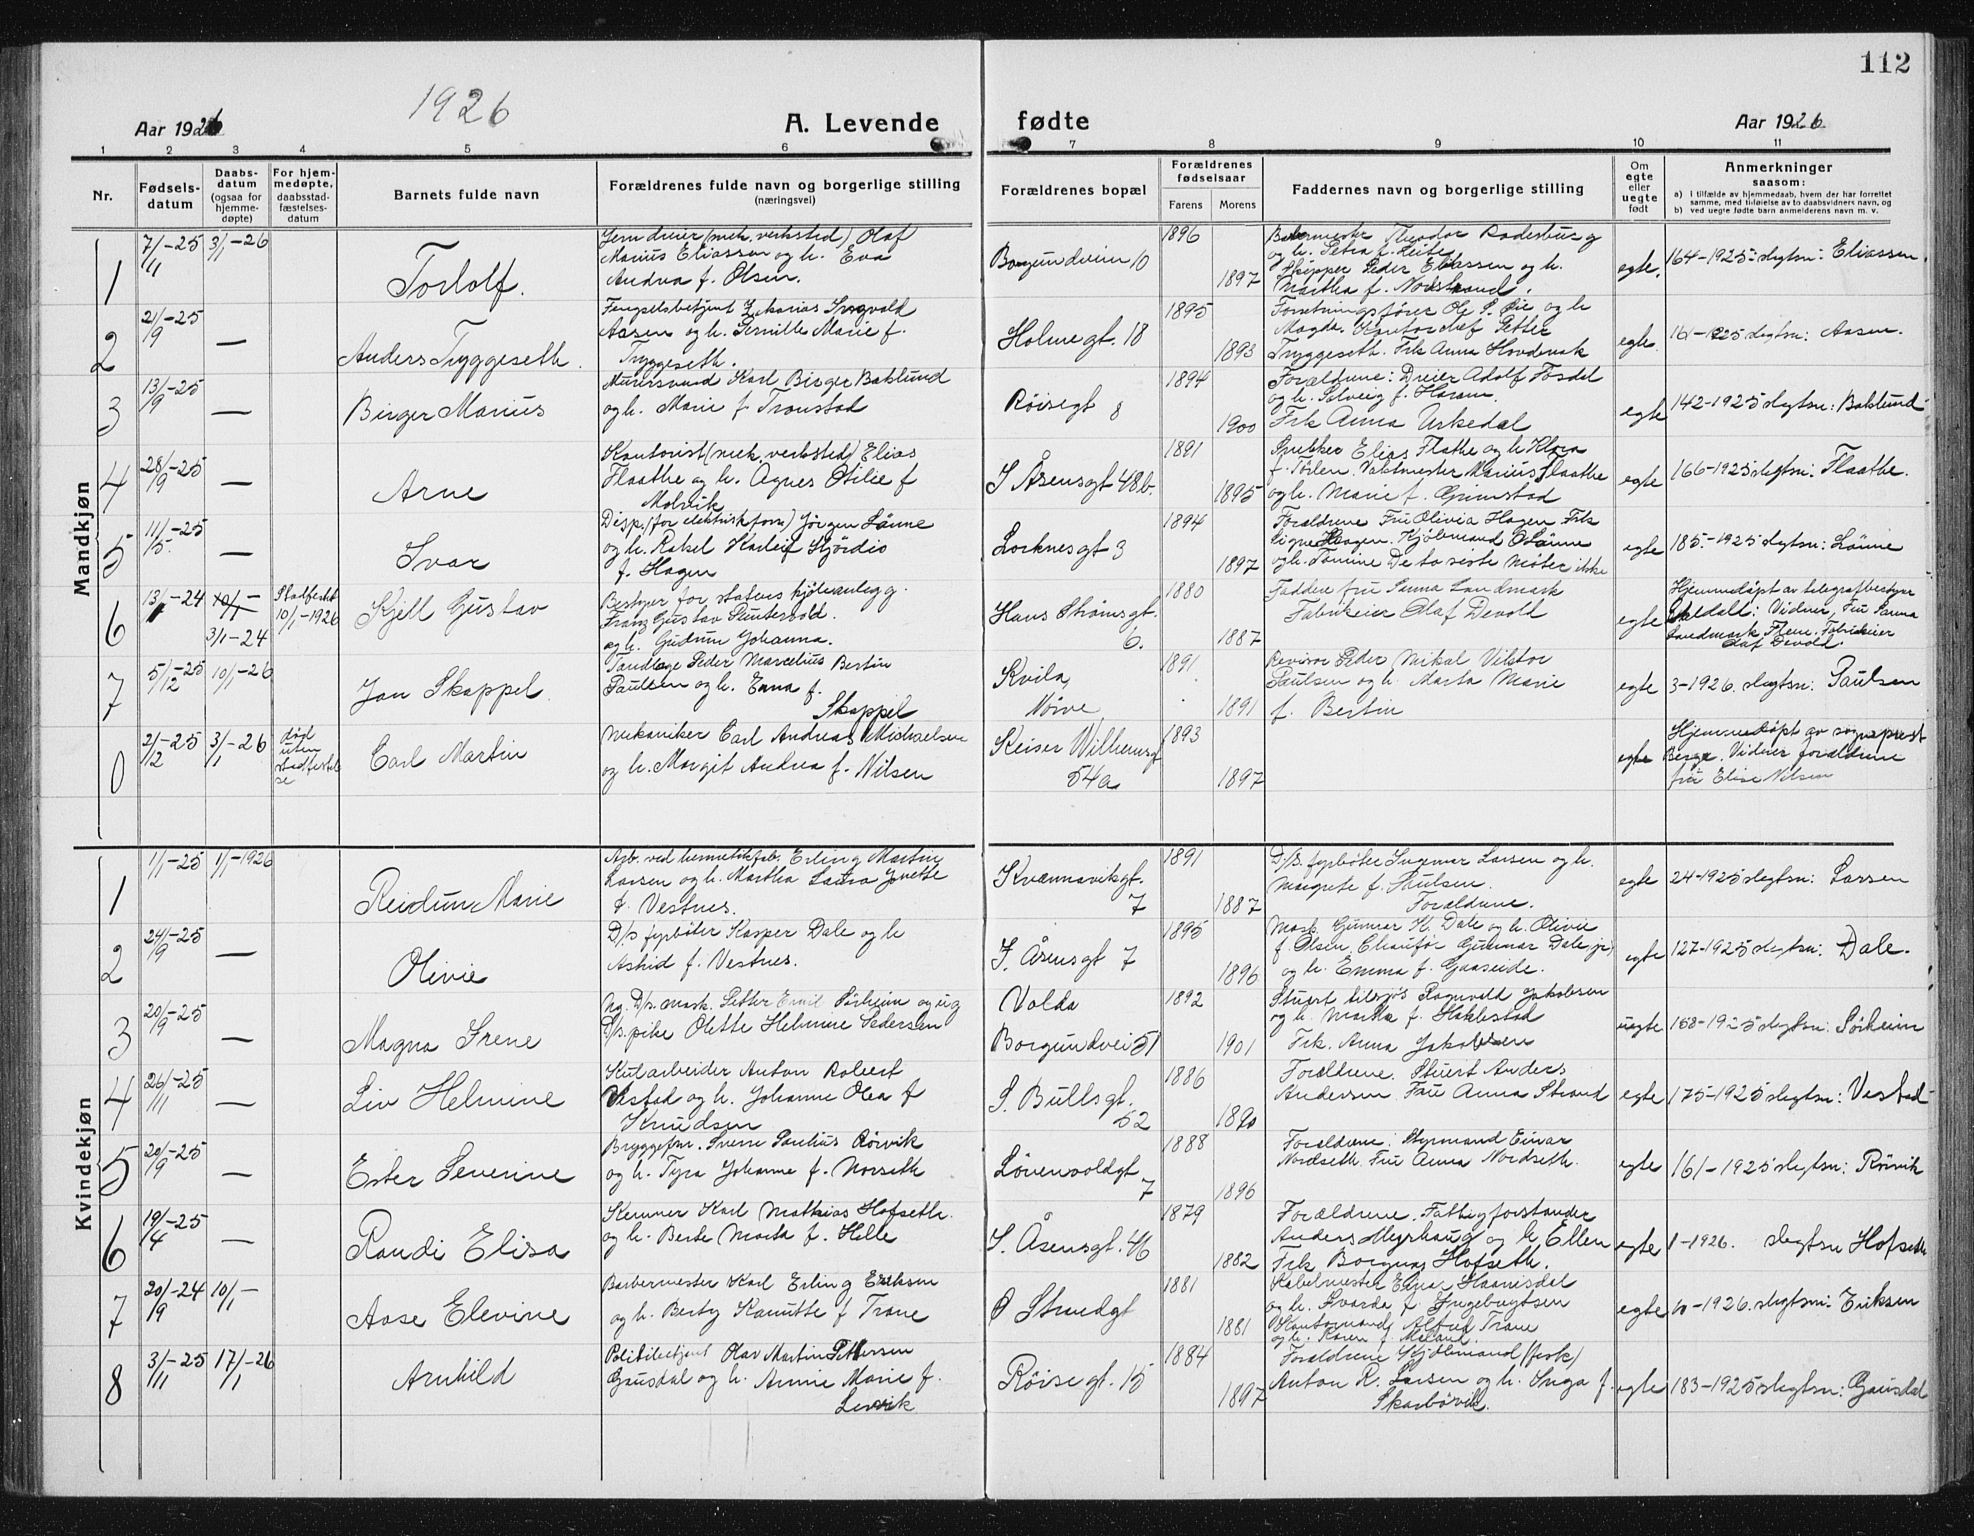 112
1926
Aar 1926
A. Levende
fødte
Aar 1926
1 2 3 4 5 6 7 8 9 10 11
Nr.
Fødsels-
datum
Daabs-
datum
(ogsaa for
hjemme-
døpte)
For hjem-
medøpte,
daabsstad-
fæstelses-
datum
Barnets fulde navn
Forældrenes fulde navn og borgerlige stilling
(næringsvei)
Forældrenes bopæl
Forældrenes
fødselsaar
Farens Morens
Faddernes navn og borgerlige stilling
Om
egte
eller
uegte
født
Anmerkninger
saasom:
a) I tilfælde av hjemmedaab, hvem der har forrettet
samme, med tilføielse av to daabsvidners navn, og
b) ved uegte fødte barn anmelderens navn m. v.
Mandkjøn
1 7/11-25 3/1-26
Torlolf.
Jerndreier (mek. verksted) Olaf
Marius Eliassen og h. Eva
Andrea f. Olsen.
Borgundveien 10
1896
1897
Theodor Rodesburg
og h. Petra f. Leite
Skipper Peder Eliassen og h.
Martha f. Nordstrand.
egte.
164-1925 slegtsn: Eliassen.
2 21/9-25 —
Anders Tryggeseth.
Fengselsbetjent Zakarias Ingvald
Aasen og h. Pernille Marie f.
Tryggeseth.
Holmegt. 18
1895
1893
Forretningsfører Ole P. Øie og h
Magda. Kontorchef Petter
Tryggeseth. Frk Anna Hovdenak
egte
161-1925 slegtsn: Aasen.
3 13/9-25 —
Birger Marius
Murersvend Karl Birger Baklund
og h. Marie f Tronstad
Røisegt 8
1894
1900
Forældrene: Dreier Adolf Fosdal
og h. Solveig f. Haram.
Frk Anna Urkedal
egte
142-1925 slegtsn: Baklund
4 28/9-25 —
Arne
Kontorist (mek. verksted) Elias
Flaathe og h. Agnes Otilie f
Molvik
I Åsensgt 48b.
1891
1895
Snekker Elias Flathe og h Klara
f. Vaktmester Marius Flaathe
og h. Marie f. Grimstad
egte
166-1925 slegtsn: Flaathe.
5 11/5-25 —
Ivar
Disp. (for elektrisk forr.) Jörgen Lånne
og h. Rakel Hjördis
f. Hagen
Lorknesgt 3
1894
1897
Forældrene Fru Olivia Hagen Frk
Signe Hagen. Kjøbmand O Lånne
og h. Tomine De to siste møter ikke
egte
185-1925 slegtsn: Lånne
6 13/1-24 3/1-24
Stadfestet
10/1-1926
Kjell Gustav
Bestyrer for statens kjøleanlegg.
Franz Gustav
og h. Gudrun Johanna.
Hans Strømsgt.
6.
1880
1887
Faddere fru Sanna Landmark
Fabrikeier Olaf Devold
egte
Hjemmedøpt av telegrafbestyrer
Vidner, Fru Sanna
Landmark Flem. Fabrikeier
Olaf Devold.
7 5/12-25 10/1-26
Jan Skappel
Tandlæge Peder Marcelius Bertin
Paulsen og h. Enna f.
Skappel
Kvila,
Nørve
1891
1891
Revisor Peder Mikal Viktor
Paulsen og h. Marta Marie
f. Bertin
egte
3-1926. slegtsn: Paulsen
0 2/12-25 3/1-26
död
uten
stadfestel
se
Carl Martin
Mekaniker Carl Andreas Michaelsen
og h. Margit Andrea f. Nilsen
Keiser Wilhemsg
54a
1893
1897
egte
Hjemmedöpt av sogneprest
Berge. Vidner forældrene
fru Elise Nilsen
Kvindekjøn
1 1/1-25 1/1-1926
Reidun Marie
Arb. ved hermetikfab. Erling Martin
Larsen og h. Martha Laura
f. Vestnes.
Kvennavikgt.
7
1891
1887
D/S. fyrbøter Ingmar Larsen og h.
Margrete f. Paulsen.
Forældrene.
egte
24-1925 slegtsn: Larsen
2 24/9-25 —
Olivie
D/S fyrbøter Kasper Dale og h
Astrid f. Vestnes.
I. Åsensgt 7
1895
1896
Mask. Gunnar K. Dale og h. Olivie
f Olsen, Chaufför Gunnar Dale jr.
og h. Emma f. Gaaseide.
egte
127-1925 slegtsn: Dale.
3 20/9-25 —
Magna Irene
Ug. D/s. mask. Petter Emil Sørheim og ug
D/s. pike Olette Helmine Pedersen
Volda
Borgundvei 51
1892
1901
Stuert tilsjøs Ragnvald Jakobsen
og h. Martha f. Hakkestad
Frk. Anna Jakobsen
uegte
158-1925 slegtsn: Sørheim
4 26/11-25 —
Liv Helmine
Kularbeider Anton Robert
Vestad og h. Johanne Olea f
Knudsen
I. Bullsgt.
52
1886
1890
Forældrene. Stuert Anders
Andersen. Fru Anna Strand
egte
175-1925 slegtsn: Vestad
5 20/9-25 —
Ester Severine
Bryggeform. Sverre Paulius Rörvik
og h. Tyra Johanne f. Norseth
Løvenvoldgt
7
1888
1896
Forældrene: Styrmand Einar
Nordseth. Fru Anna Nordseth.
egte
161-1925 slegtsn: Rörvik
6 19/4-25 —
Randi Elisa
Kemner Karl Mathias Hofseth.
og h. Berte Marta f. Helle
I. Åsensgt. 46
1879
1882
Forældrene. Fattigforstander
Anders Myrhaug og h. Ellen
Frk Borgny Hofseth.
egte
1-1926. slegtsn Hofseth
7 20/9-24 10/1-
Aase Elevine
Barbermester Karl Erling Eriksen
og h. Berty Kanutte f Trane
Ø Strandgt
1881
1881
Kabelmester Einar Haanesdal
og h. Svarda f Ingebrigtsen
Kontormand Alfred Trane
og h. Karen f. Meland.
egte
10-1926. slegtsn: Eriksen
8 3/11-25 17/1-26
Arnhild
Politibetjent Olav Martin Pettersen
Gausdal og h. Annie Marie f.
Lervik
Röisegt. 15
1884
1897
Forældrene Kjöbmand (fersk)
Anton R. Larsen og h. Inga f.
Skarbövik.
egte
183-1925 slegtsn: Gausdal